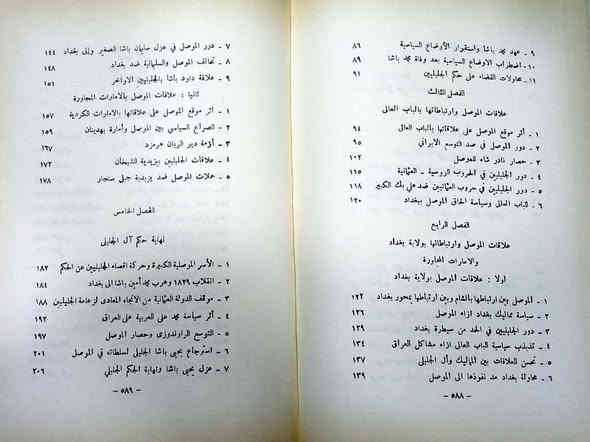 ٩ - عهد محمد باشا واستقرار الأوضاع السياسية ٨٦
١٠ - اضطراب الاوضاع السياسية بعد وفاة محمد باشا ٨٩
١١ - محاولات القضاء على حكم الجليليين ٩١
الفصل الثالث
علاقات الموصل وارتباطاتها بالباب العالى
١ - أثر موقع الموصل على علاقاتها بالباب العالى ٩٤
٢ - دور الموصل في صد التوسع الايراني ٩٥
٣ - حصار نادر شاه للموصل ١٠٢
٤ - دور الجليليين في الحروب الروسية - العثمانية ١١٥
٥ - دور الجليليين في حروب العثمانيين ضد علي بك الكبير ١١٨
٦ - الباب العالى وسياسة الحاق الموصل ببغداد ١٢٠
الفصل الرابع
علاقات الموصل وارتباطاتها بولاية بغداد
والامارات المجاورة
اولا : علاقات الموصل بولاية بغداد
١ - الموصل بين ارتباطها بالشام وبين ارتباطها بمحور بغداد ١٢٢
٢ - سياسة مماليك بغداد ازاء الموصل ١٢٦
٣ - دور الجليليين في الحد من سيطرة بغداد ١٢٩
٤ - تذبذب سياسة الباب العالى ازاء مشاكل العراق ١٣٤
٥ - تحسن العلاقات بين المماليك وآل الجليلى ١٣٧
٦ - محاولة بغداد مد نفوذها الى الموصل ١٣٩
- ٥٨٨ -
٧ - دور الموصل في عزل سليمان باشا الصغير والى بغداد ١٤٤
٨ - تحالف الموصل والسليمانية ضد بغداد ١٤٨
٩ - علاقة داود باشا بالجليليين الاواخر ١٥١
ثانيا : علاقات الموصل بالامارات المجاورة
١ - اثر موقع الموصل على علاقاتها بالامارات الكردية ١٥٧
٢ - الصراع السياسي بين الموصل وأمارة بهدينان ١٥٩
٣ - أزمة دير الربان هرمزد ١٦٧
٤ - علاقات الجليليين بيزيدية الشيخان ١٧٢
٥ - حملات الموصل ضد يزيدية جبل سنجار ١٧٨
الفصل الخامس
نهاية حكم آل الجليلى
١ - الأسر الموصلية الكبيرة وحركة اقصاء الجليليين عن الحكم ١٨٢
٢ - انقلاب ١٨٢٩ وهرب محمد أمين باشا الى بغداد ١٨٤
٣ - موقف الدولة العثمانية من الاتجاه المعادى لزعامة الجليليين ١٨٨
٤ - أثر سياسة محمد على العربية على العراق ١٩٢
٥ - التوسع الراوندوزى وحصار الموصل ١٩٧
٦ - استرجاع يحيى باشا الجليلى لسلطاته في الموصل ٢٠١
٧ - عزل يحيى باشا ونهاية الحكم الجليلى ٢٠٦
- ٥٨٩ -